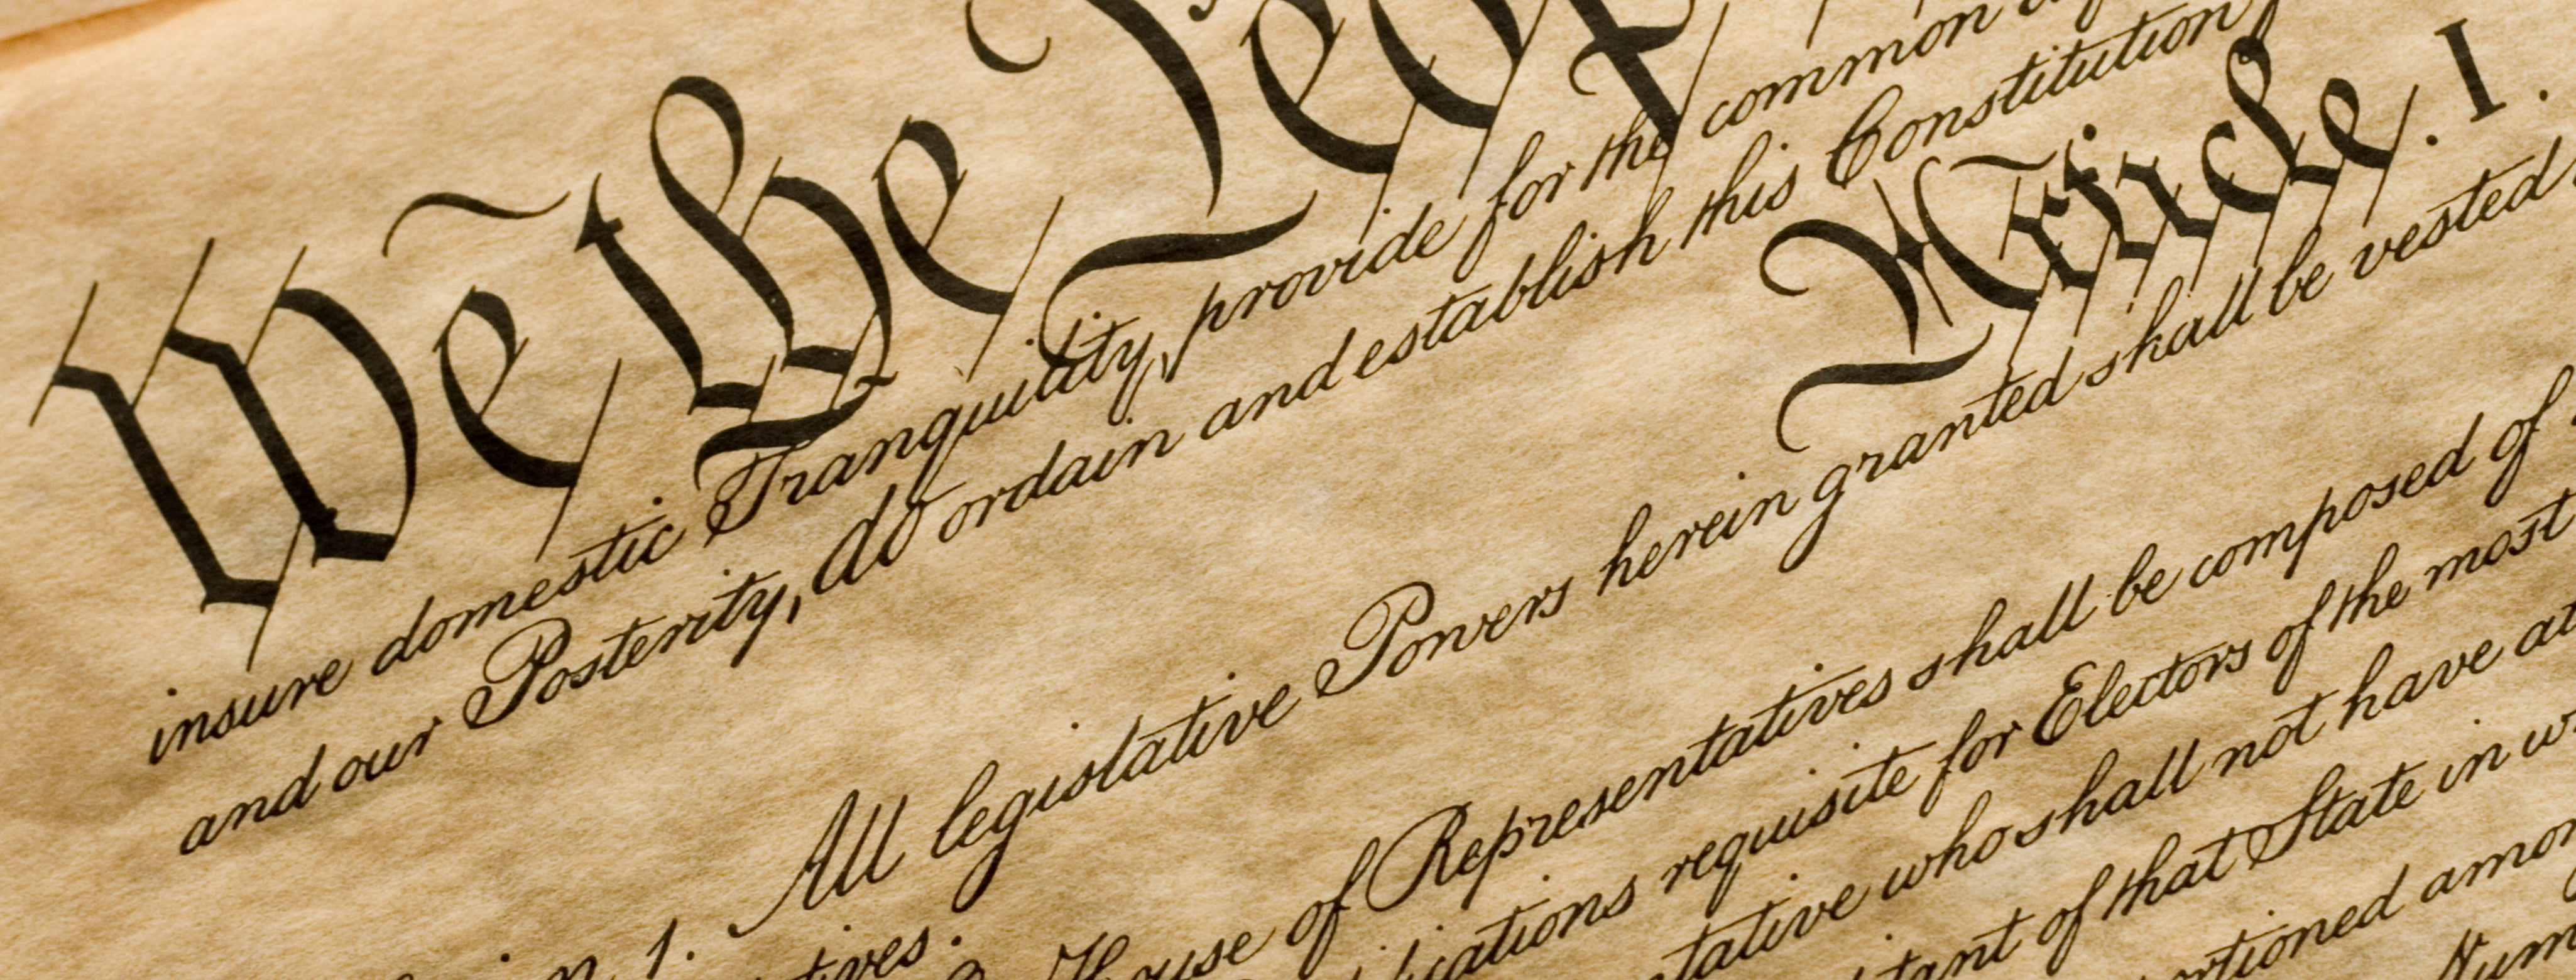 We the Peop
insure domestic Tranquility, provide for the common
and our Posterity, do ordain and establish this Constitution
Article. I.
1. All legislative Powers herein granted shall be vested
House of Representatives shall be composed of
requisite for Electors of the most
who shall not have
of that State in